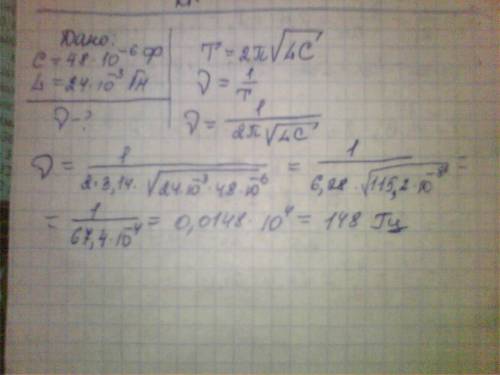 Дано:
C = 48·10⁻⁶ Ф
L = 24·10⁻³ Гн
ν - ?
T = 2π√LC
ν = 1/T
ν = 1/(2π√LC)
ν = 1/(2·3,14·√(24·10⁻³·48·10⁻⁶)) = 1/(6,28·√(115,2·10⁻⁸)) =
= 1/(67,4·10⁻⁴) = 0,0148·10⁴ = 148 Гц